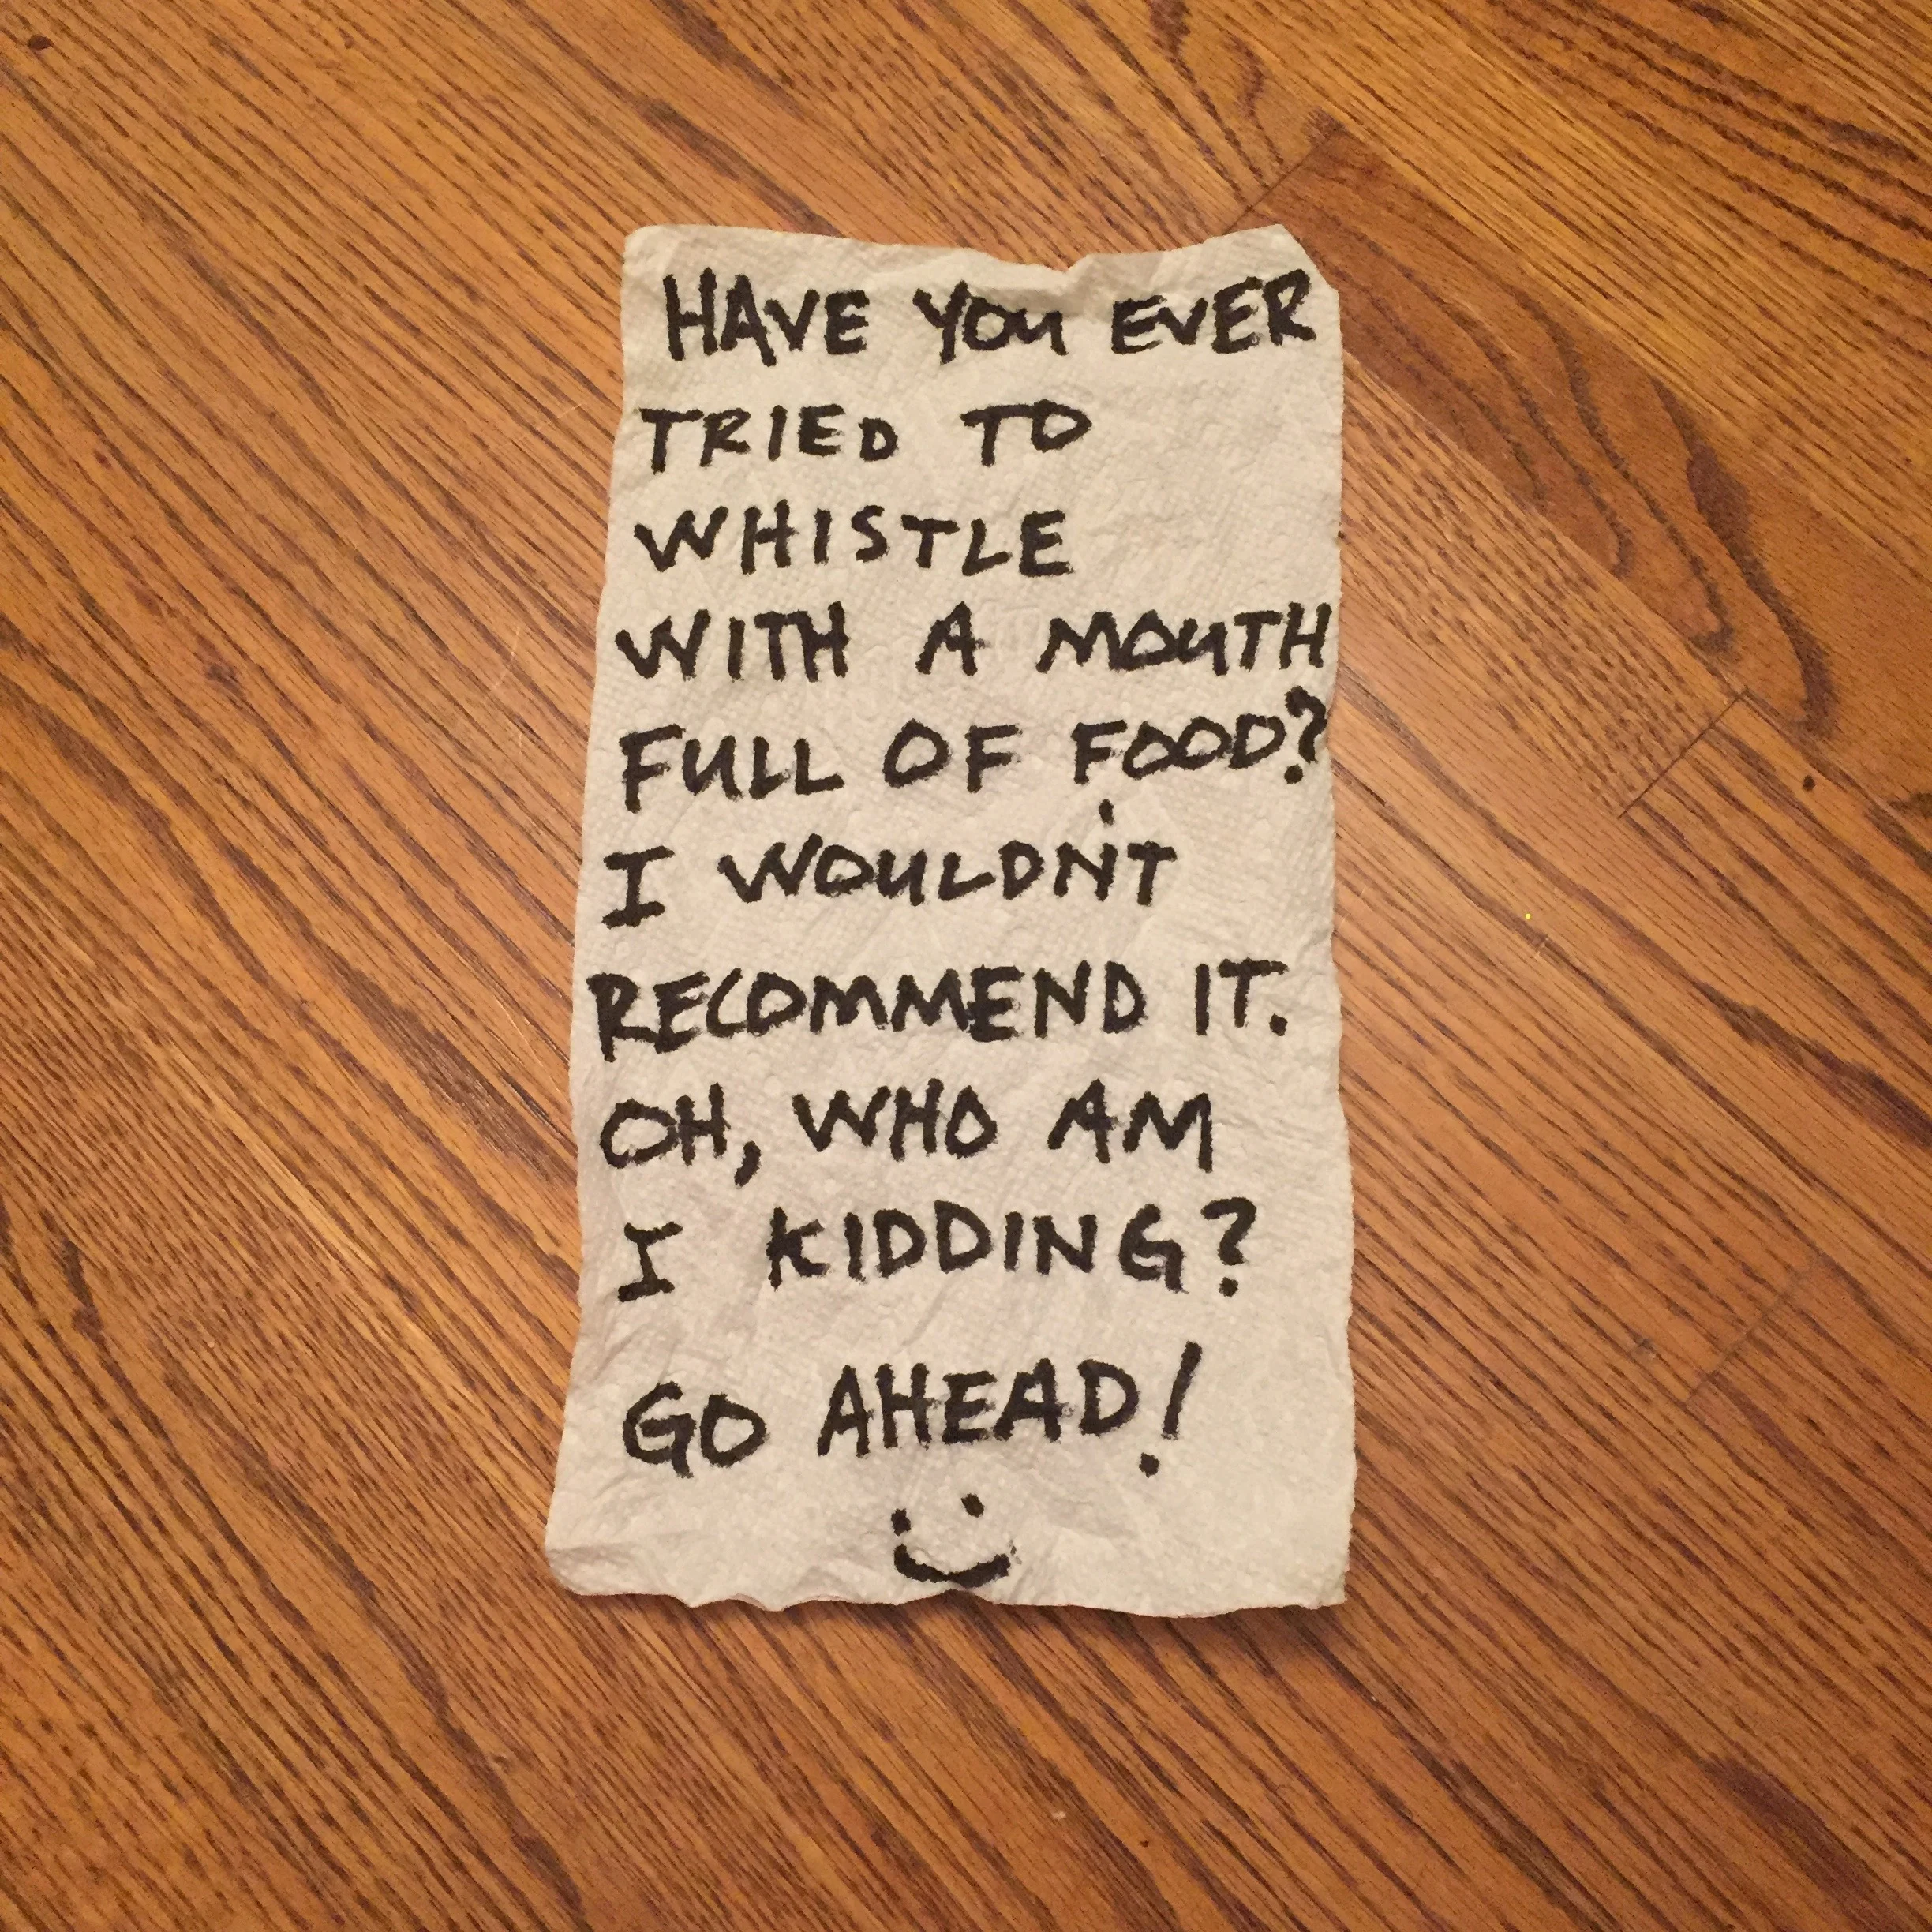 HAVE YOU EVER
TRIED TO
WHISTLE
WITH A MOUTH
FULL OF FOOD?
I WOULDN'T
RECOMMEND IT.
OH, WHO AM
I KIDDING?
GO AHEAD!